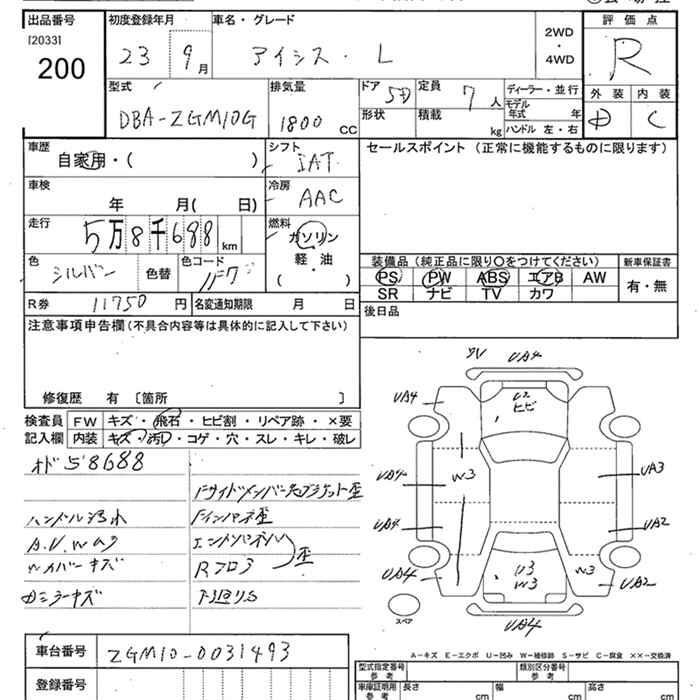 出品番号
[2033]
200
初度登録年月
23 9月
車名・グレード
アイシス・L
2WD
・
4WD
評価点
R
外装 内装
D C
型式
DBA-ZGM10G
排気量
1800 CC
ドア 5D
形状
定員 7人
積載 kg
ディーラー・並行
モデル年式 年
ハンドル 左・右
車歴
自家用・( )
シフト
IAT
セールスポイント (正常に機能するものに限ります)
車検
年 月( 日)
冷房
AAC
走行
5万8千688 km
燃料
ガソリン
軽・油
( )
色
シルバー 色替
色コード
1F7
装備品 (純正品に限り○をつけてください)
PS PW ABS エアB AW
SR ナビ TV カワ
新車保証書
有・無
R券 11750 円
名変通知期限 月 日
後日品
注意事項申告欄(不具合内容等は具体的に記入して下さい)
修復歴 有 〔箇所 〕
検査員記入欄
FW キズ・飛石・ヒビ割・リペア跡・×要
内装 キズ・汚れ・コゲ・穴・スレ・キレ・破レ
オド58688
ハンドル汚れ
Wカバーキズ
インパネ歪
エンドパネル
Rフロア
歪
下廻りS
UA4
UA4
U2
ヒビ
UA4
W3
UA3
UA4
UA2
UA4
U3
W3
W3
UA2
UA4
スペア
A-キズ E-エクボ U-凹み W-補修跡 S-サビ C-腐食 XX-交換済
車台番号 ZGM10-0031493
登録番号
型式指定番号
参考
類別区分番号
参考
車庫証明用
参考
長さ cm
幅 cm
高さ cm